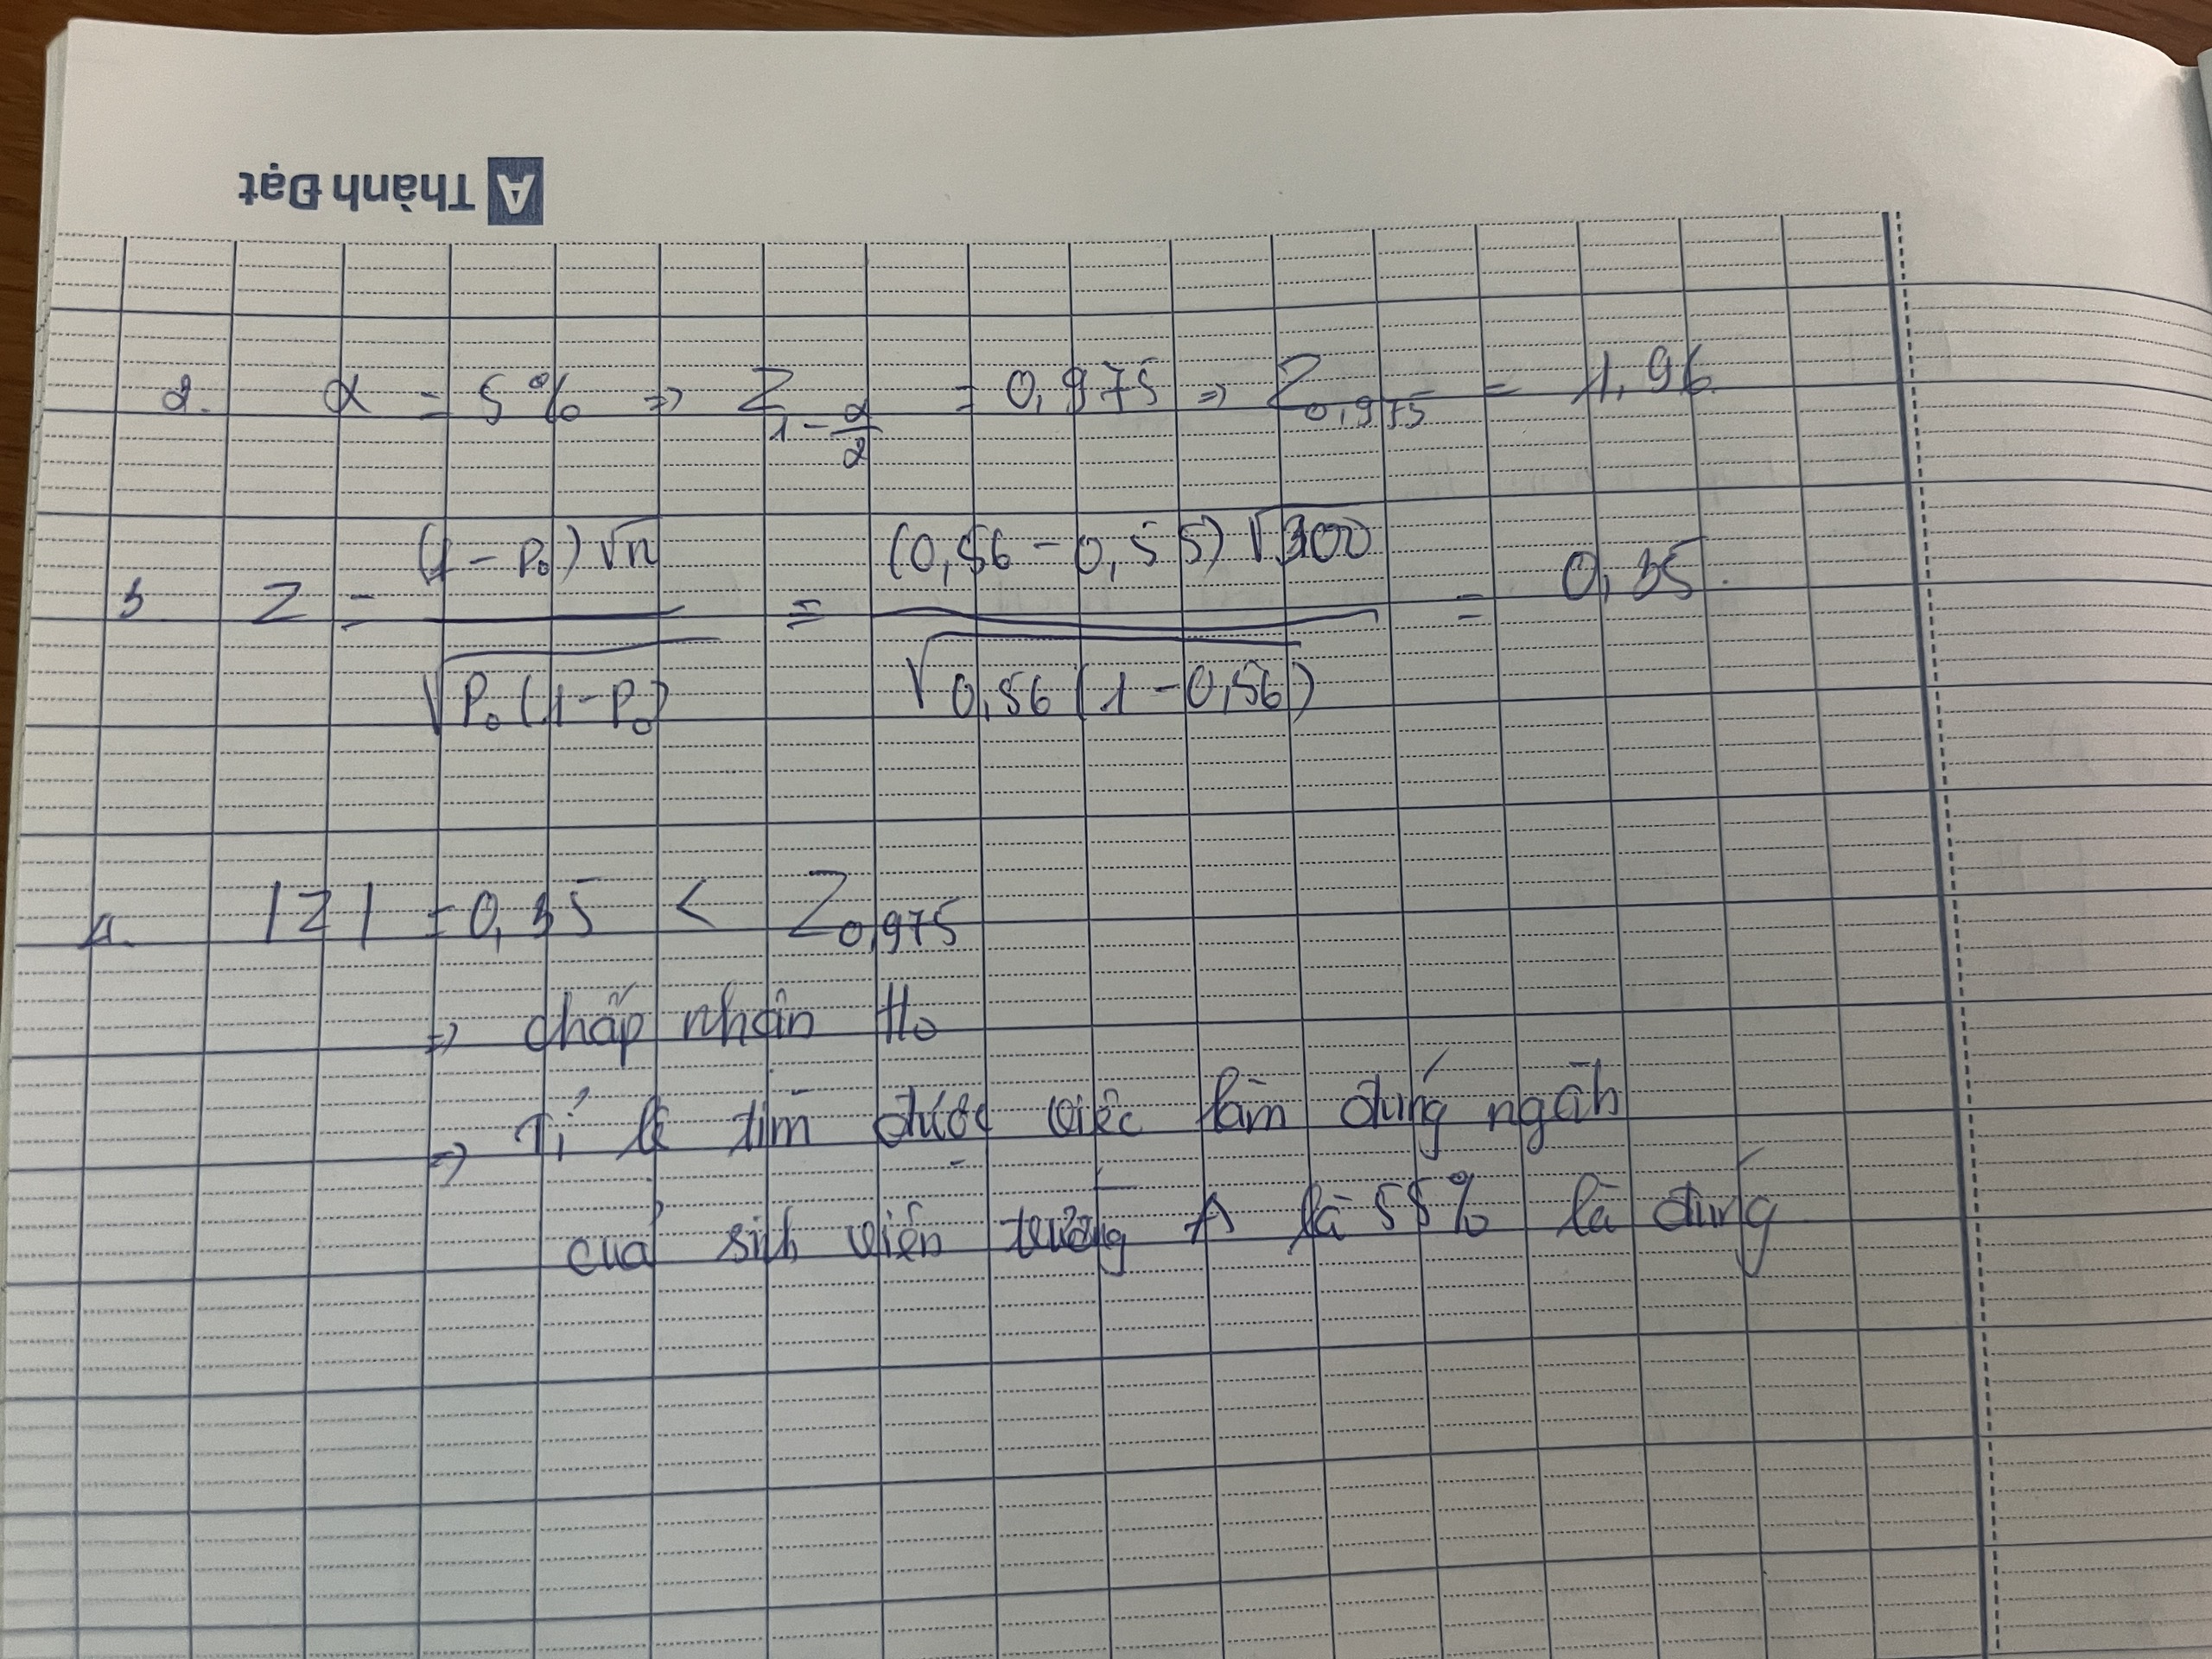 A Thành Đạt
2. α = 5% => Z_{1-α/2} = 0,975 => Z_{0,975} = 1,96.
3. Z = (f - P₀)√n / √P₀(1-P₀) = (0,56 - 0,55)√300 / √0,56(1-0,56) = 0,35.
4. |Z| = 0,35 < Z_{0,975}
=> chấp nhận H₀
=> Tỉ lệ tìm được việc làm đúng ngành
của sinh viên trường A là 55% là đúng